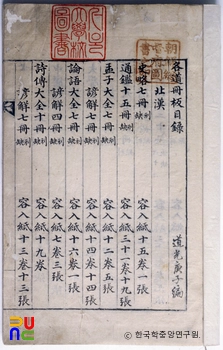 各道冊板目錄
道光庚子編
北漢
史略七冊 刓缺 容入紙十五卷一張
通鑑十五冊 刓缺 容入紙三十一卷十九張
孟子大全七冊 刓缺 容入紙十五卷十張
諺解七冊 刓缺 容入紙十四卷十四張
論語大全七冊 刓缺 容入紙十六卷三張
諺解四冊 刓缺 容入紙七卷三張
詩傳大全十冊 刓缺 容入紙十九卷
諺解七冊 刓缺 容入紙十三卷十三張
한국학중앙연구원